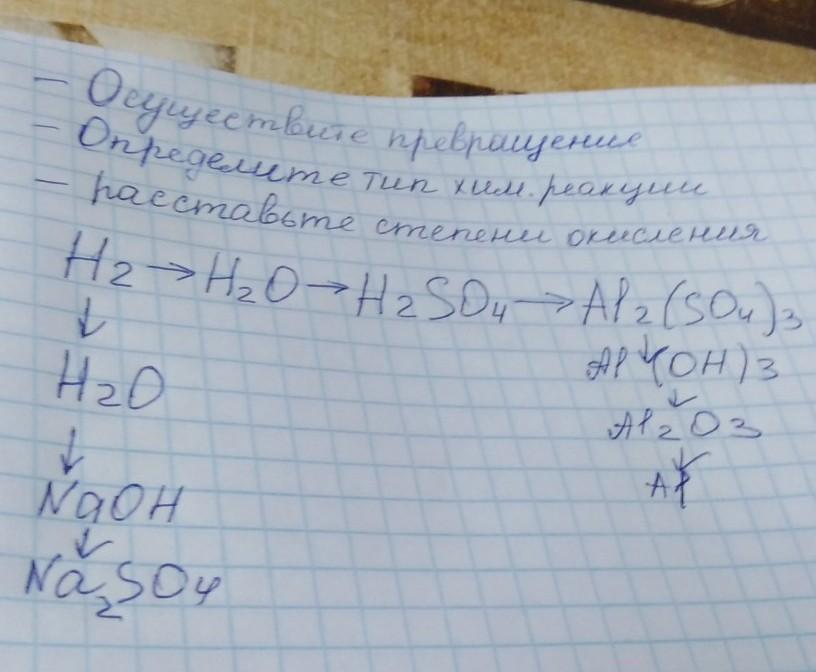 — Осуществите превращение
— Определите тип хим. реакции
— расставьте степени окисления
H2 → H2O → H2SO4 → Al2(SO4)3
↓ ↓
H2O Al(OH)3
↓ ↓
NaOH Al2O3
↓ ↓
Na2SO4 Al